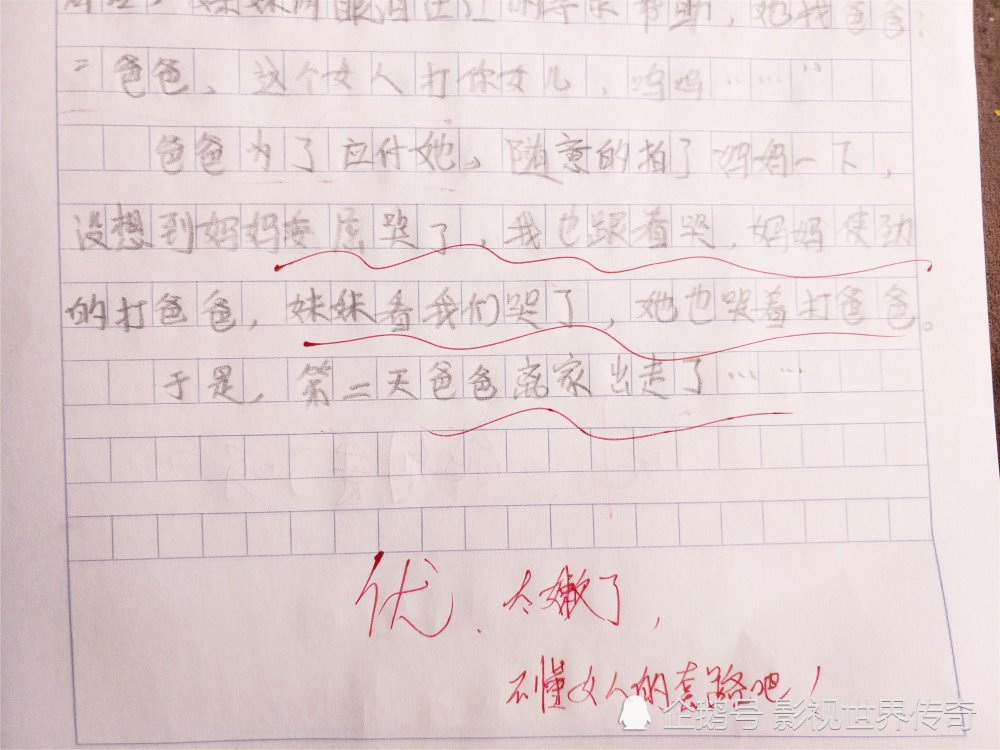 妹妹两眼泪汪汪的寻求帮助,她找爸爸:
“爸爸,这个女人打你女儿,呜呜……”
爸爸为了应付她,随意的拍了妈妈一下,
没想到妈妈委屈哭了,我也跟着哭,妈妈使劲
的打爸爸,妹妹看我们哭了,她也哭着打爸爸。
于是,第二天爸爸离家出走了……
优、太嫩了,
不懂女人的套路吧!
企鹅号 影视世界传奇